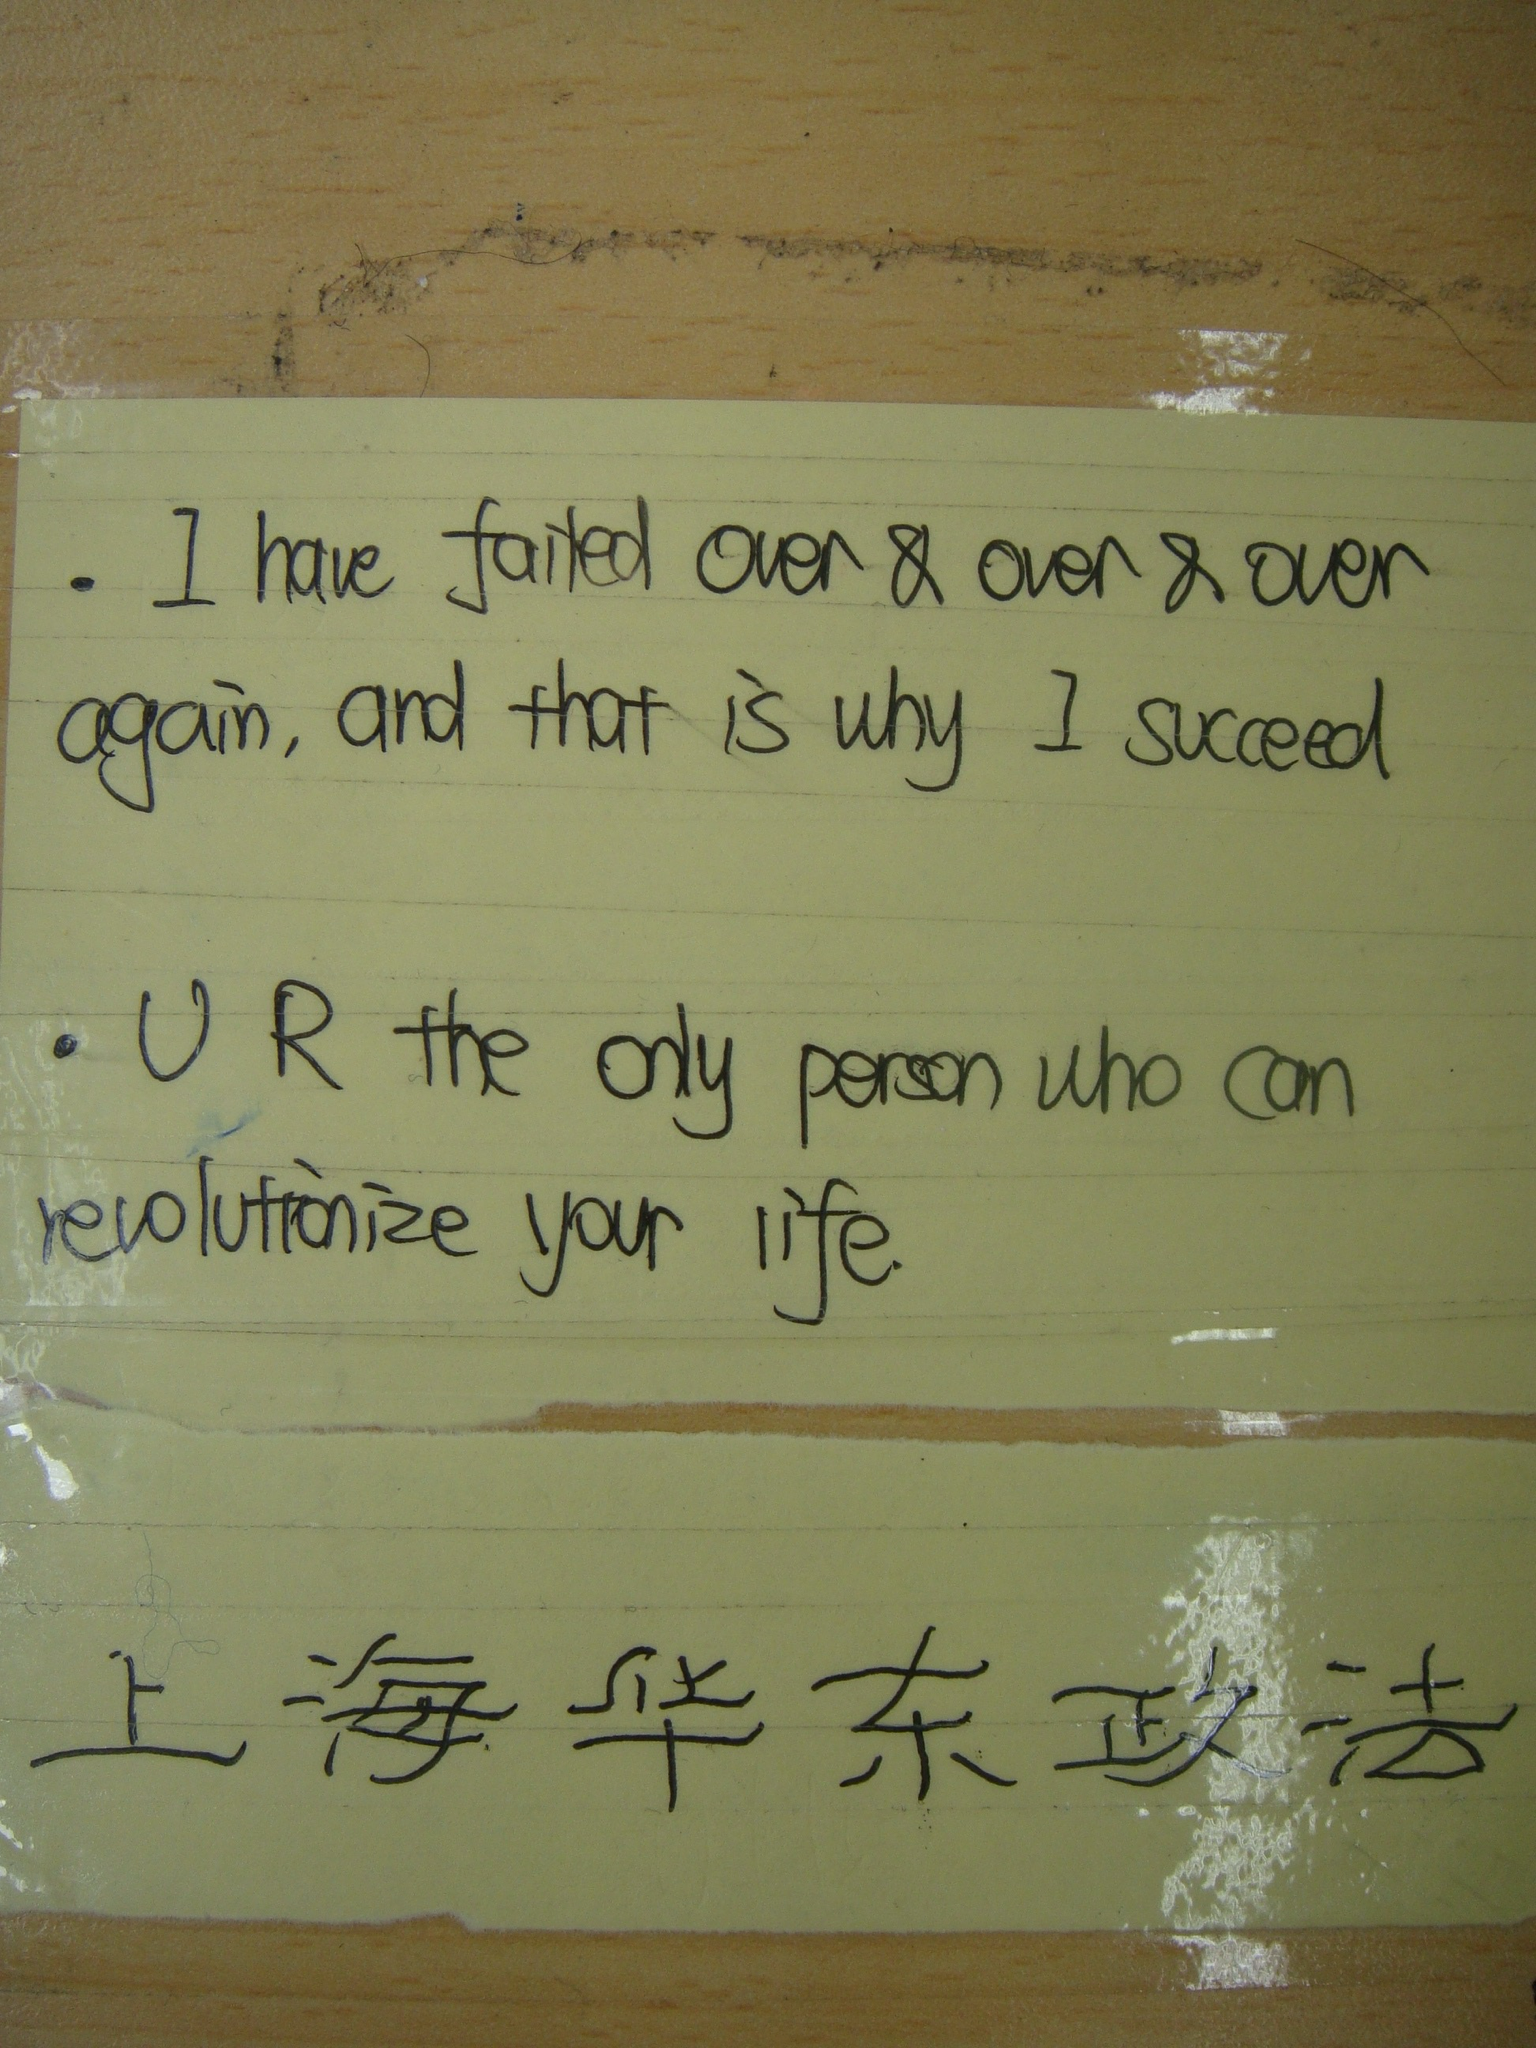 • I have failed over & over & over
again, and that is why I succeed
• U R the only person who can
revolutionize your life.
上海华东政法